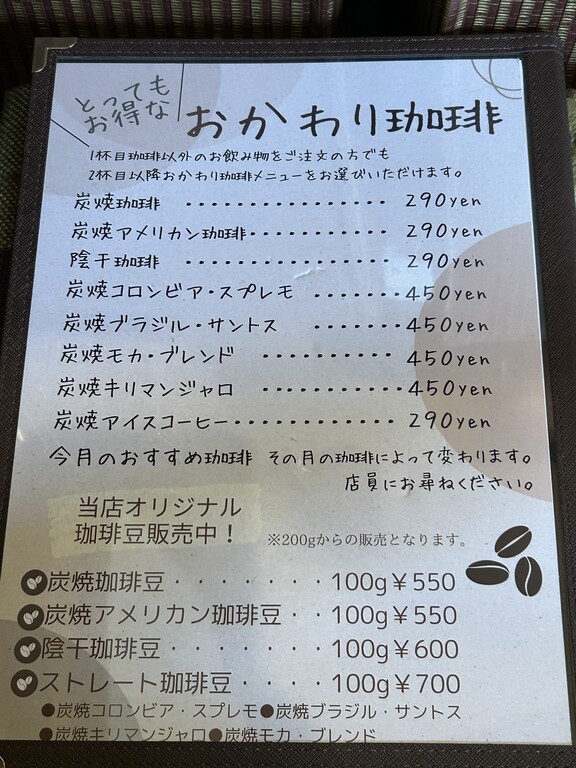 とっても
お得な
おかわり珈琲
1杯目珈琲以外のお飲み物をご注文の方でも
2杯目以降おかわり珈琲メニューをお選びいただけます。
炭焼珈琲 ・・・・・・・・・・・・・・・・ 290yen
炭焼アメリカン珈琲・・・・・・・・・・・ 290yen
陰干珈琲 ・・・・・・・・・・・・・・・・ 290yen
炭焼コロンビア・スプレモ ・・・・・・・450yen
炭焼ブラジル・サントス ・・・・・・・450yen
炭焼モカ・ブレンド ・・・・・・・・・・ 450yen
炭焼キリマンジャロ ・・・・・・・・・・・450yen
炭焼アイスコーヒー・・・・・・・・・・・・ 290yen
今月のおすすめ珈琲 その月の珈琲によって変わります。
店員にお尋ねください。
当店オリジナル
珈琲豆販売中！
※200gからの販売となります。
炭焼珈琲豆・・・・・・・100g￥550
炭焼アメリカン珈琲豆・・100g￥550
陰干珈琲豆・・・・・・・100g￥600
ストレート珈琲豆・・・・100g￥700
●炭焼コロンビア・スプレモ●炭焼ブラジル・サントス
●炭焼キリマンジャロ●炭焼モカ・ブレンド